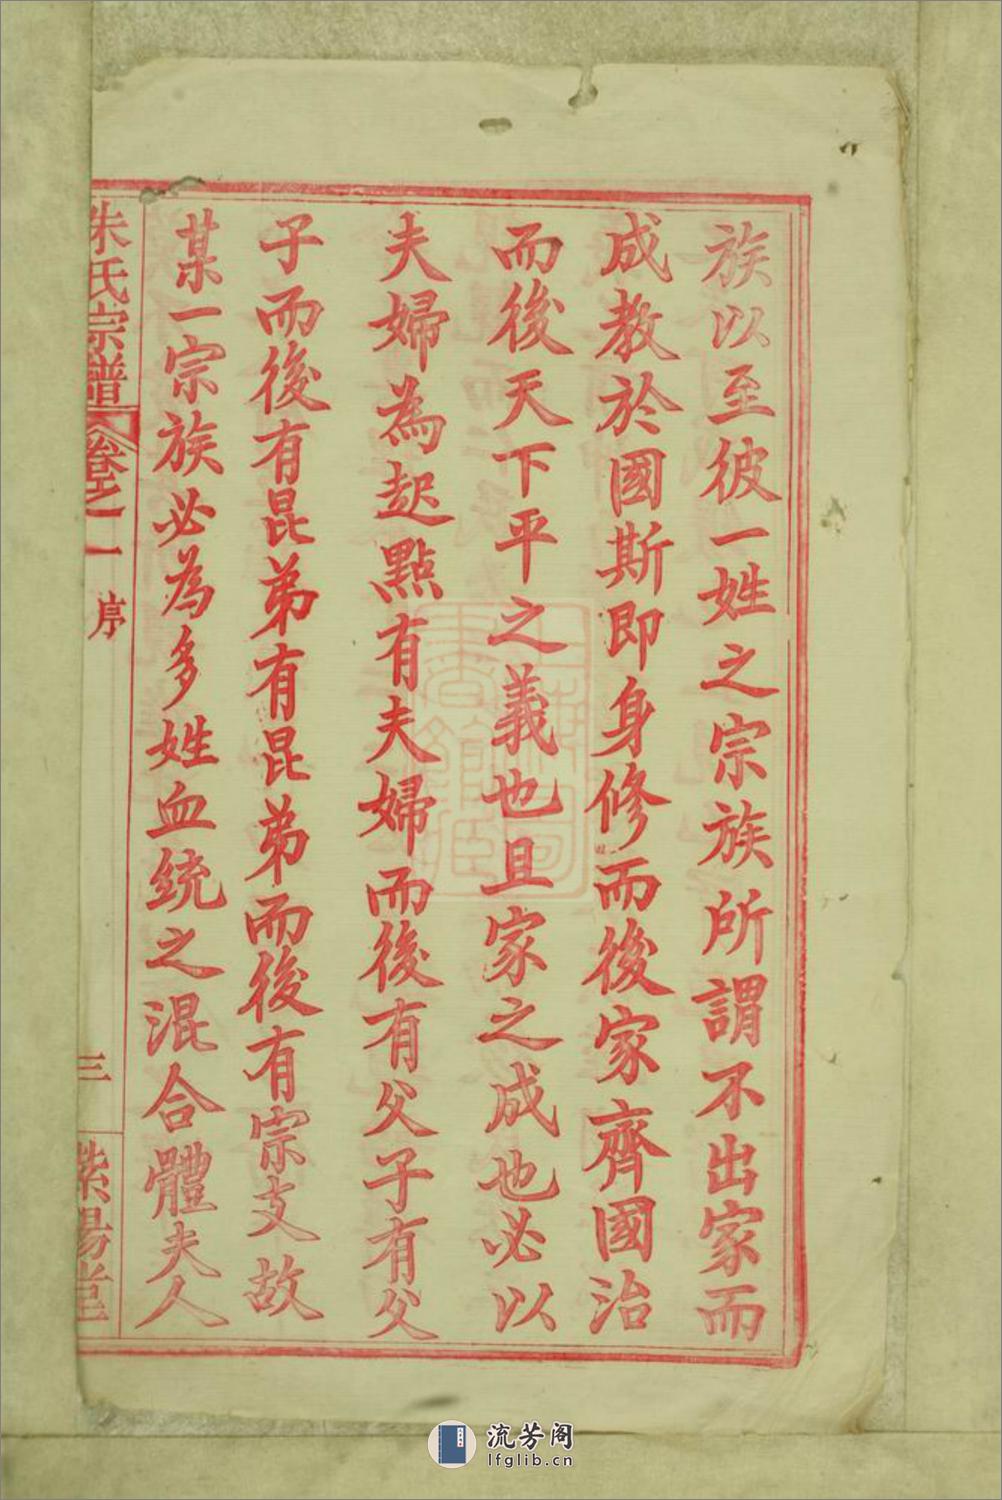 族以至彼一姓之宗族所謂不出家而
成教於國斯即身修而後家齊國治
而後天下平之義也且家之成也必以
夫婦為起點有夫婦而後有父子有父
子而後有昆弟有昆弟而後有宗支故
某一宗族必為多姓血统之混合體夫人
朱氏宗譜
卷之一
序
三
紫陽堂
上海圖書館藏
流芳阁
lfglib.cn